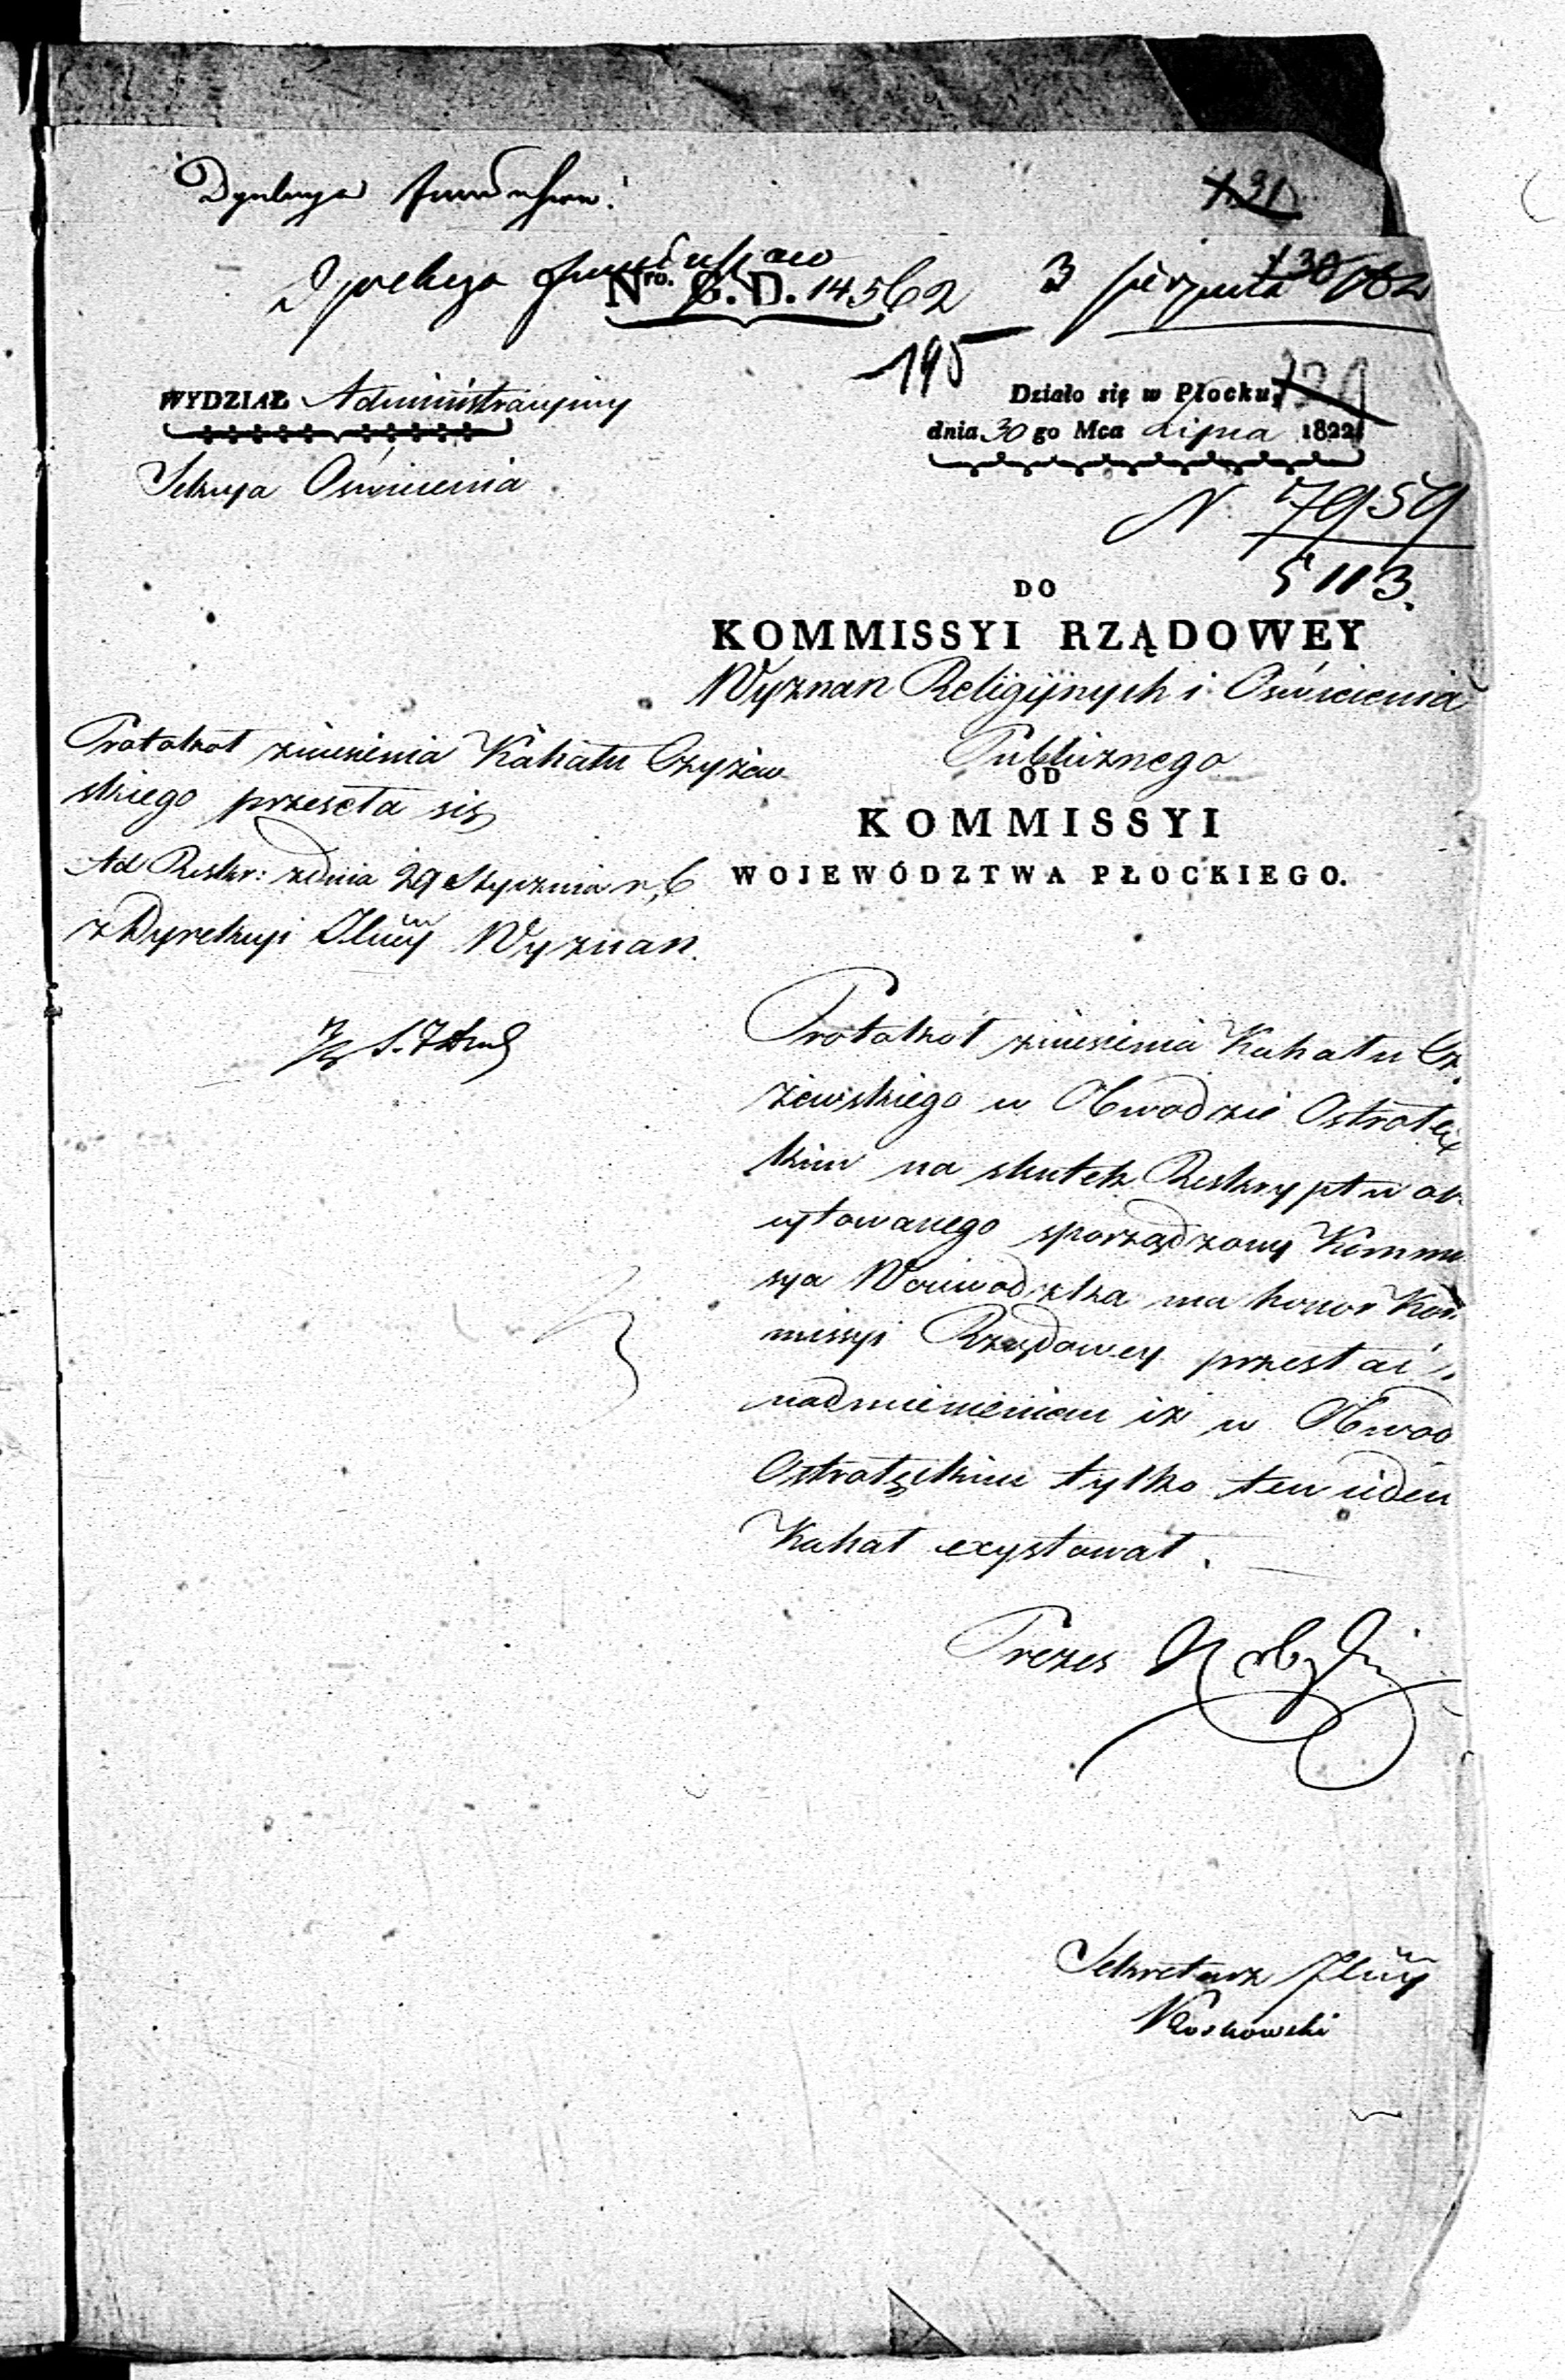 131
Dyrekcya Funduszów
Nro. G. D. 14562
3 sierpnia 130
195
WYDZIAŁ Administracyjny
Sekcya Oswiecenia
Działo się w Płocku, 129
dnia 30 go Mca Lipca 1822
N. 7959
5113.
DO
KOMMISSYI RZĄDOWEY
Wyznan Religijnych i Oswiecenia
Publicznego
OD
KOMMISSYI
WOJEWÓDZTWA PŁOCKIEGO.
Protokoł zniesienia Kahału Czyżew
skiego przeseła się
Ad Reskr: z dnia 29 Stycznia r, b
z Dyrekcyi Wyznan.
Protokoł zniesienia Kahału Cz.
żewskiego w Obwodzie Ostrołęc
kim na skutek Reskryptu ob
cytowanego sporządzony Kommis
sya Woiewodzka ma honor Kom
missyi Rządowey przesłać
nadmienieniem iż w Obwod
Ostrołęckim tylko ten ieden
Kahał exystował.
Prezes
Sekretarz